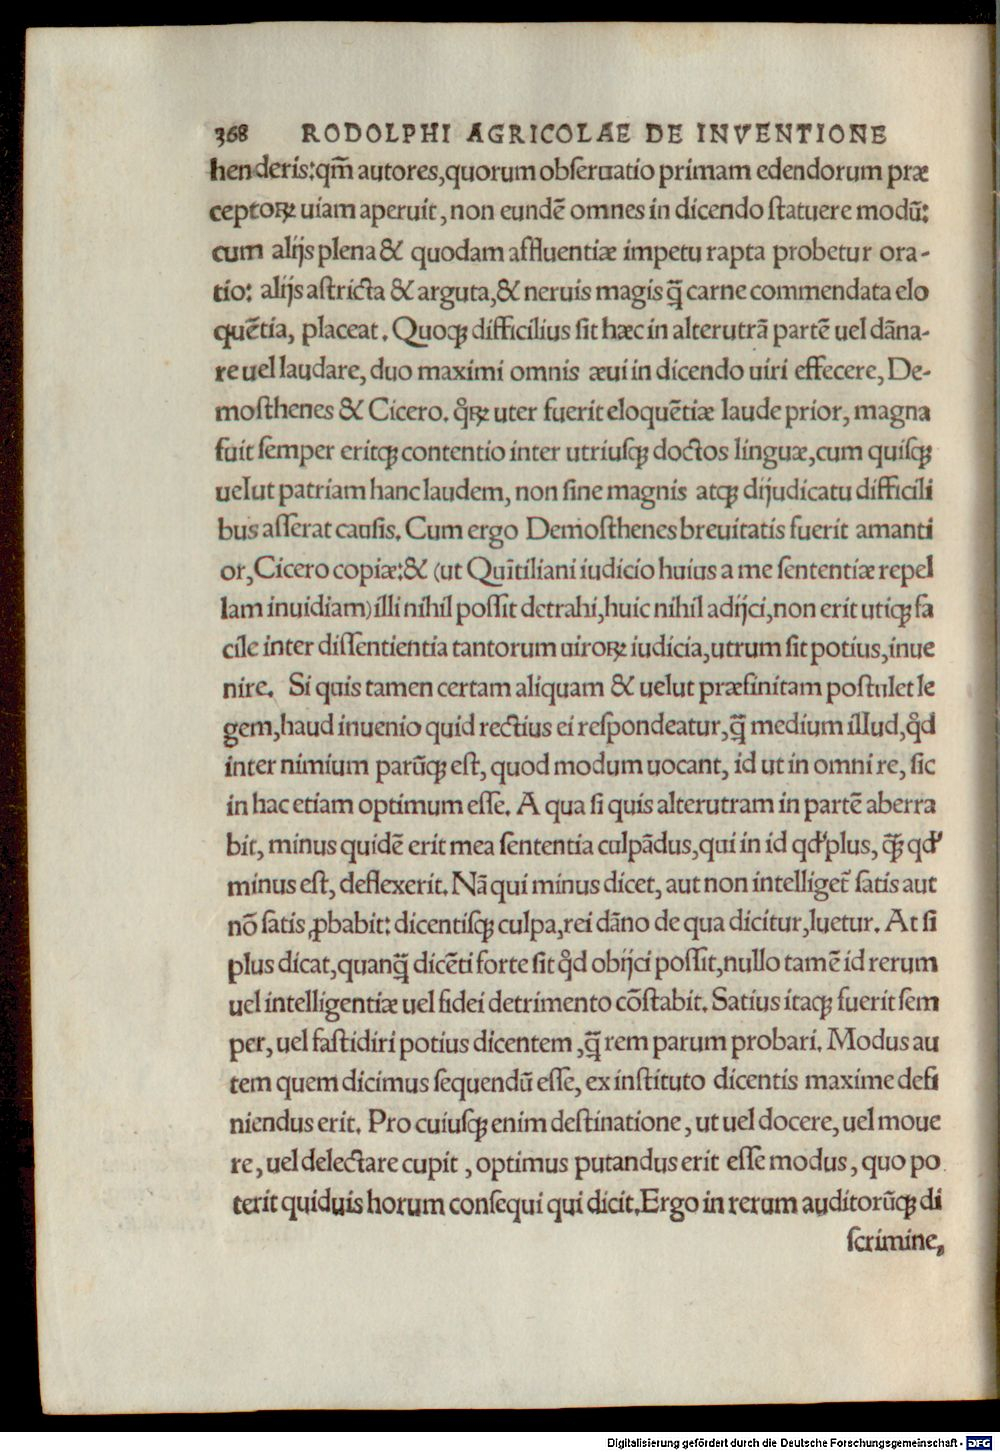 368 RODOLPHI AGRICOLAE DE INVENTIONE
henderis:qm̃ autores,quorum obſeruatio primam edendorum præ
ceptoꝝ uiam aperuit, non eundē omnes in dicendo ſtatuere modū:
cum alijs plena & quodam affluentiæ impetu rapta probetur ora-
tio: alijs aſtricta & arguta,& neruis magis q̃ carne commendata elo
quētia, placeat. Quoqꝫ difficilius ſit hæc in alterutrā partē uel dāna-
re uel laudare, duo maximi omnis æui in dicendo uiri effecere, De-
moſthenes & Cicero. qͦꝝ uter fuerit eloquētiæ laude prior, magna
fuit ſemper eritqꝫ contentio inter utriuſqꝫ doctos linguæ,cum quiſqꝫ
uelut patriam hanc laudem, non ſine magnis atqꝫ dijudicatu difficili
bus aſſerat cauſis. Cum ergo Demoſthenes breuitatis fuerit amanti
or,Cicero copiæ:& (ut Quītiliani iudicio huius a me ſententiæ repel
lam inuidiam) illi nihil poſſit detrahi,huic nihil adijci,non erit utiqꝫ fa
cile inter diſſentientia tantorum uiroꝝ iudicia,utrum ſit potius,inue
nire. Si quis tamen certam aliquam & uelut præfinitam poſtulet le
gem,haud inuenio quid rectius ei reſpondeatur,q̃ medium illud,qͦd
inter nimium parūqꝫ eſt, quod modum uocant, id ut in omni re, ſic
in hac etiam optimum eſſe. A qua ſi quis alterutram in partē aberra
bit, minus quidē erit mea ſententia culpādus,qui in id qd' plus, q̃ꝫ qd'
minus eſt, deflexerit. Nā qui minus dicet, aut non intelliget̃ ſatis aut
nō ſatis ꝓbabit: dicentiſqꝫ culpa,rei dāno de qua dicitur,luetur. At ſi
plus dicat,quanq̃ dicēti forte ſit qͦd obijci poſſit,nullo tamē id rerum
uel intelligentiæ uel fidei detrimento cōſtabit. Satius itaqꝫ fuerit ſem
per, uel faſtidiri potius dicentem ,q̃ rem parum probari. Modus au
tem quem dicimus ſequendū eſſe, ex inſtituto dicentis maxime defi
niendus erit. Pro cuiuſqꝫ enim deſtinatione, ut uel docere, uel moue
re, uel delectare cupit , optimus putandus erit eſſe modus, quo po
terit quiduis horum conſequi qui dicit.Ergo in rerum auditorūqꝫ di
ſcrimine,
Digitalisierung gefördert durch die Deutsche Forschungsgemeinschaft - DFG